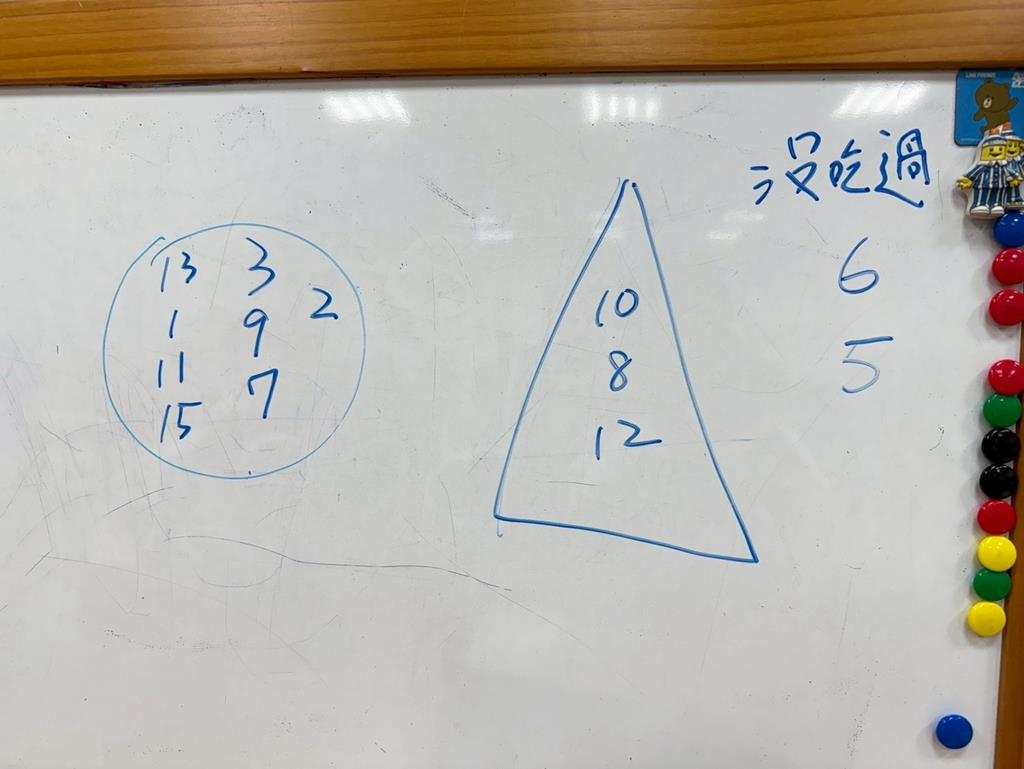 沒吃過
13 3
2
1 9
11 7
15
10
8
12
6
5
LINE FRIENDS